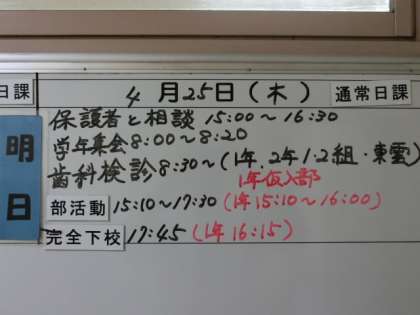 日課 4月25日(木) 通常日課
明日
保護者と相談 15:00～16:30
学年集会 8:00～8:20
歯科検診 8:30～(1年.2年1.2組・東雲)
1年仮入部
部活動 15:10～17:30 (1年15:10～16:00)
完全下校 17:45 (1年16:15)